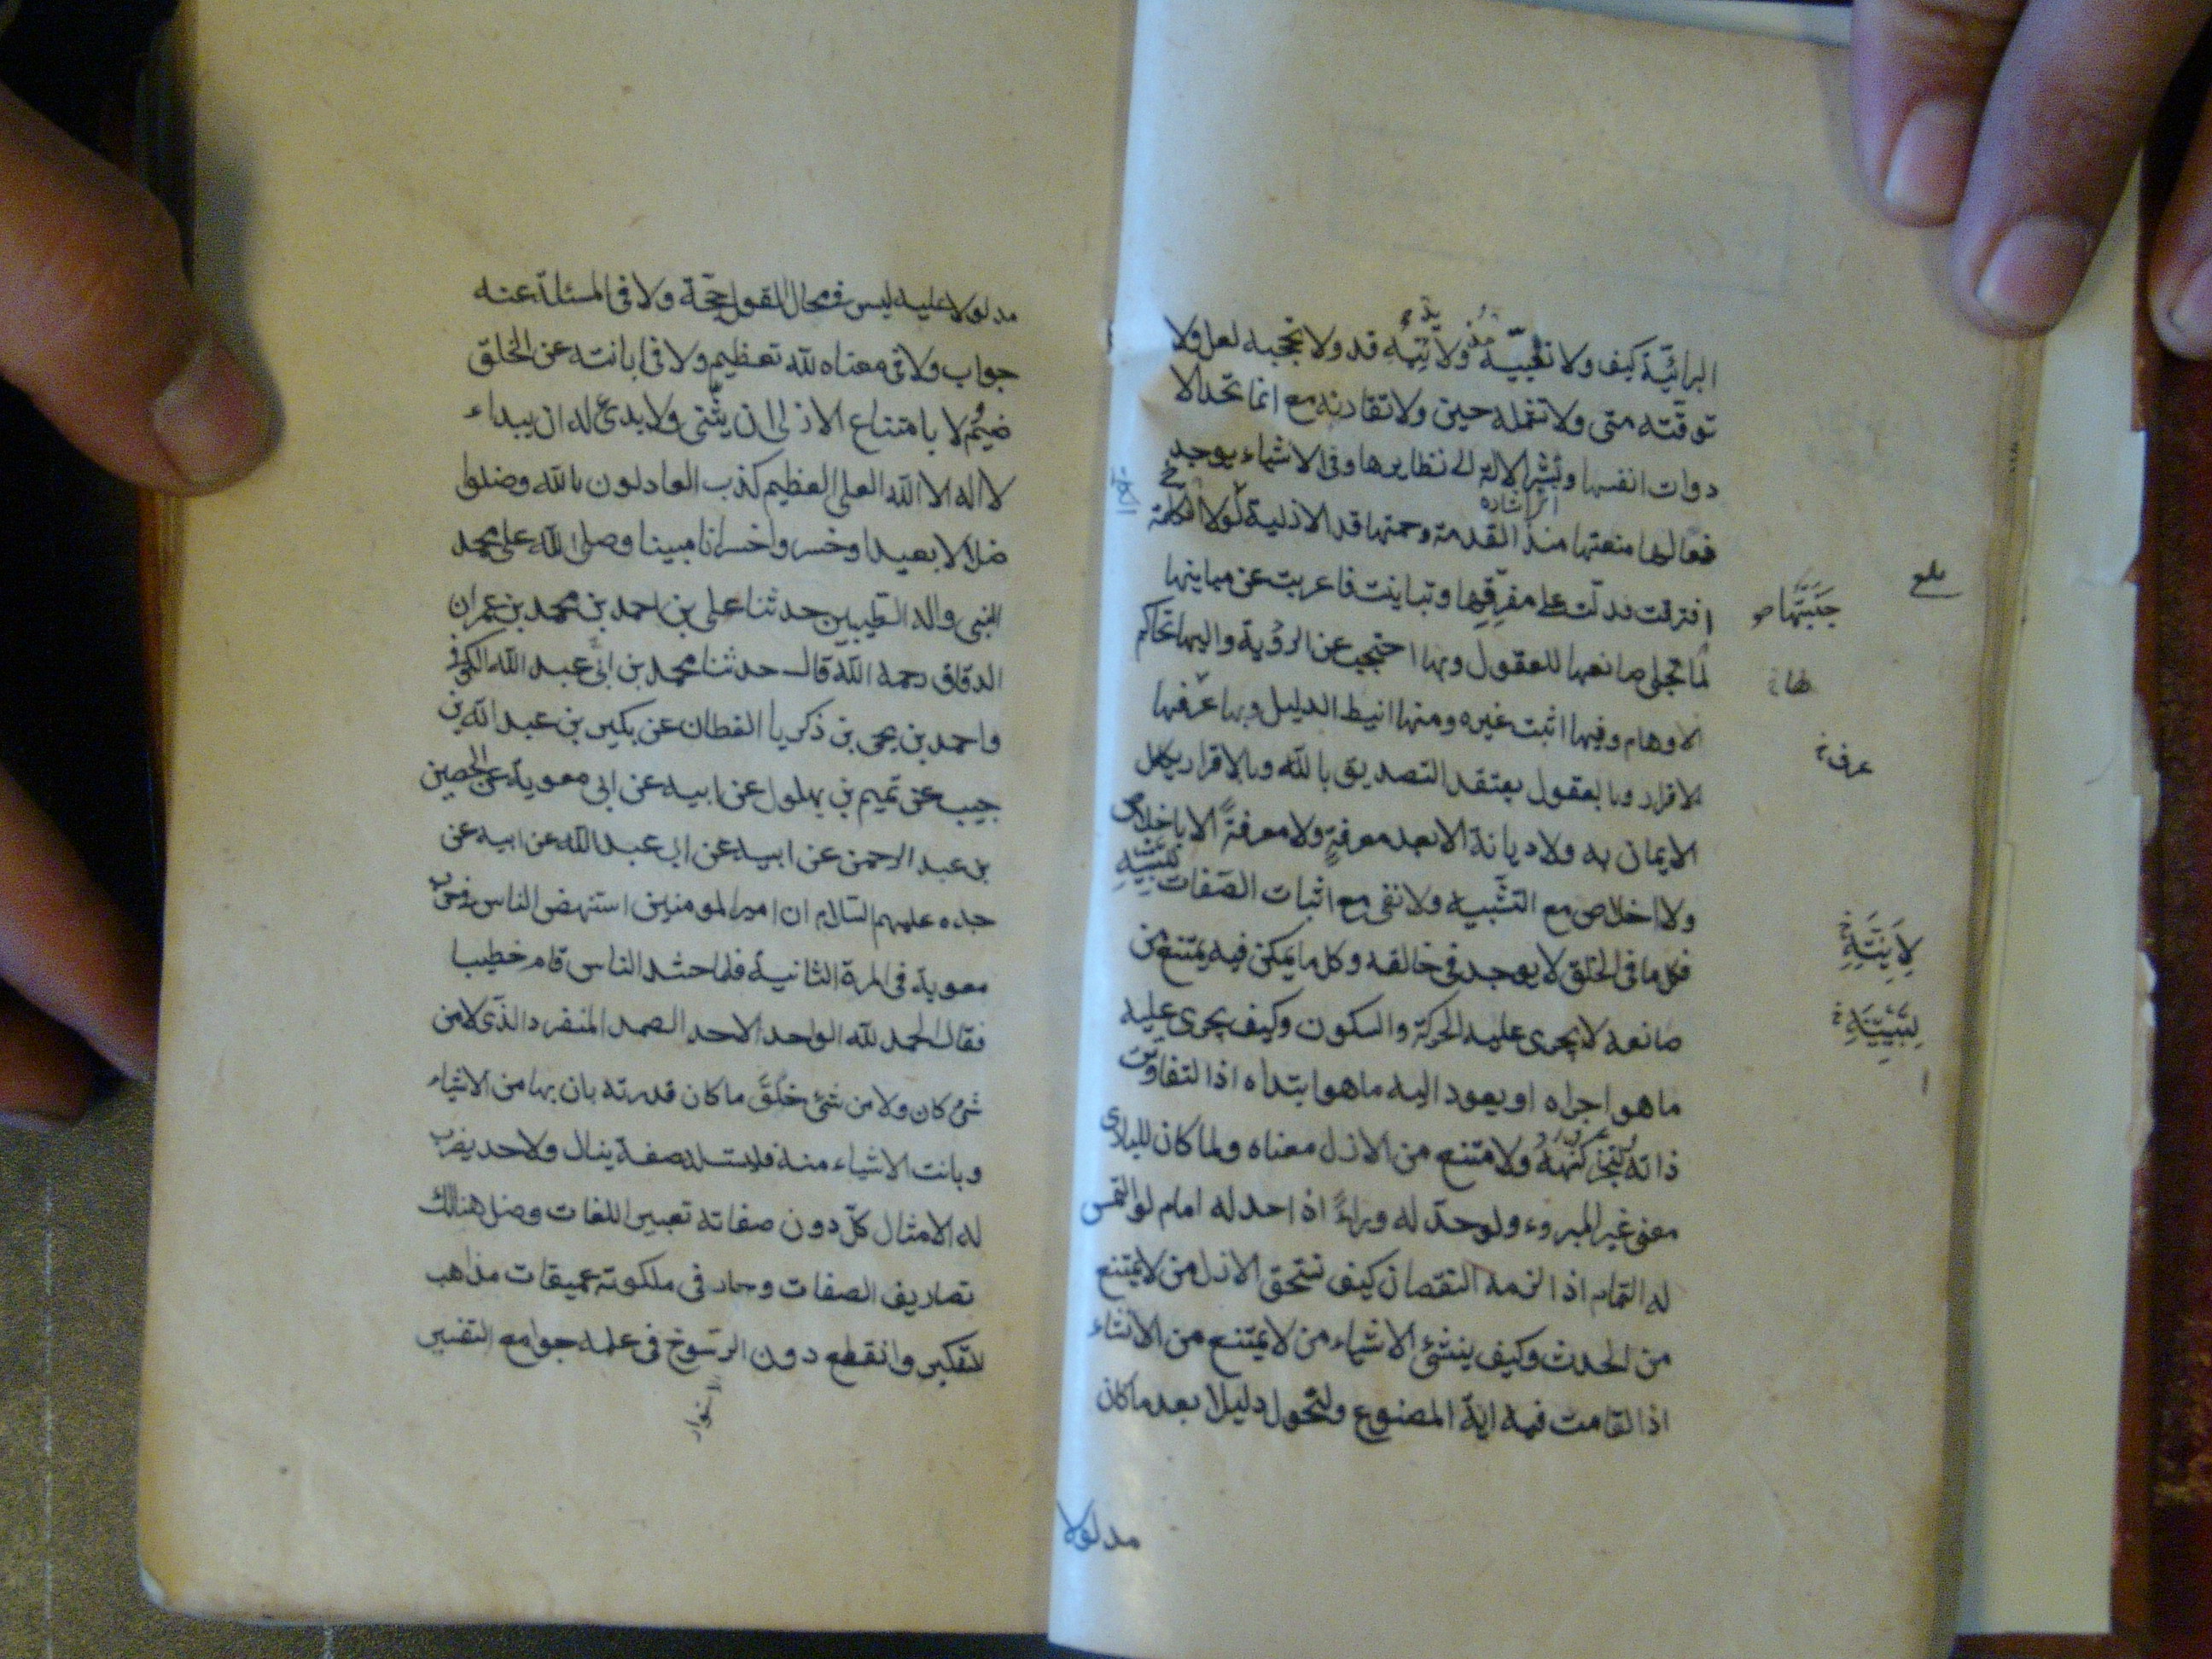 البرائيّة كيف ولا تغيبه مذ ولا تدنيه قد ولا تحجبه لعل ولا
توقته متى ولا تشمله حين ولا تقارنه مع انما تحد الا
دوات انفسها وتشير الالة الى نظايرها وفى الاشياء يوجد
فعالها منعتها منذ القدمة وحمتها قد الازلية لولا الكلمة
افترقت فدلت على مفرّقها وتباينت فاعربت عن مباينها
لما تجلى صانعها للعقول وبها احتجب عن الرؤية واليها تحاكم
الاوهام وفيها اثبت غيره ومنها انيط الدليل وبها عرّفها
الاقرار وبالعقول يعتقد التصديق بالله وبالاقرار يكمل
الايمان به ولا ديانة الا بعد معرفةٍ ولا معرفةً الا باخلاص
ولا اخلاص مع التشبيه ولا نفى مع اثبات الصّفات
فكل ما فى الخلق لا يوجد فى خالقه وكل ما يمكن فيه يمتنع من
صانعه لا يجرى عليه الحركة والسكون وكيف يجرى عليه
ما هو اجراه او يعود اليه ما هو ابتداه اذا لتفاوتت
ذاته ولتجزء كنهه ولامتنع من الازل معناه ولما كان للبارى
معنى غير المبروء ولو حدّ له وراءً اذا حد له امام لو التمس
له التمام اذا لزمه النقصان كيف تستحق الازل من لا يمتنع
من الحدث وكيف ينشئ الاشياء من لا يمتنع من الانشاء
اذا لقامت فيه اية المصنوع ولتحول دليلا بعد ما كان
مدلولا
بلغ
جنبتها
لها
عرف
مدلولا عليه ليس فى محال القول حجّة ولا فى المسئلة عنه
جواب ولا فى معناه لله تعظيم ولا فى ابانته عن الخلق
ضيم الا بامتناع الازلى ان يثنى ولا بدئ له ان يبداء
لا اله الا الله العلى العظيم كذب العادلون بالله وضلوا
ضلالا بعيدا وخسروا خسرانا مبينا وصلى الله على محمد
النبى واله الطيبين حدثنا على بن احمد بن محمد بن عمران
الدقاق رحمه الله قال حدثنا محمد بن ابى عبد الله الكوفى
واحمد بن يحيى بن زكريا القطان عن بكير بن عبد الله بن
حبيب عن تميم بن بهلول عن ابيه عن ابى معوية عن الحصين
بن عبد الرحمن عن ابيه عن ابى عبد الله عن ابيه عن
جده عليهم السّلام ان امير المومنين استنهض الناس فى حرب
معوية فى المرة الثانية فلما حشد الناس قام خطيبا
فقال الحمد لله الواحد الاحد الصمد المنفرد الذّى لا من
شئ كان ولا من شئ خلق ما كان قدرته بان بها من الاشياء
وبانت الاشياء منه فليست له صفة ينال ولا حد يضرب
له الامثال كلّ دون صفاته تعبير اللغات وضل هنالك
تصاريف الصفات وحار فى ملكوته عميقات مذاهب
التفكير وانقطع دون الرسوخ فى علمه جوامع التفسير